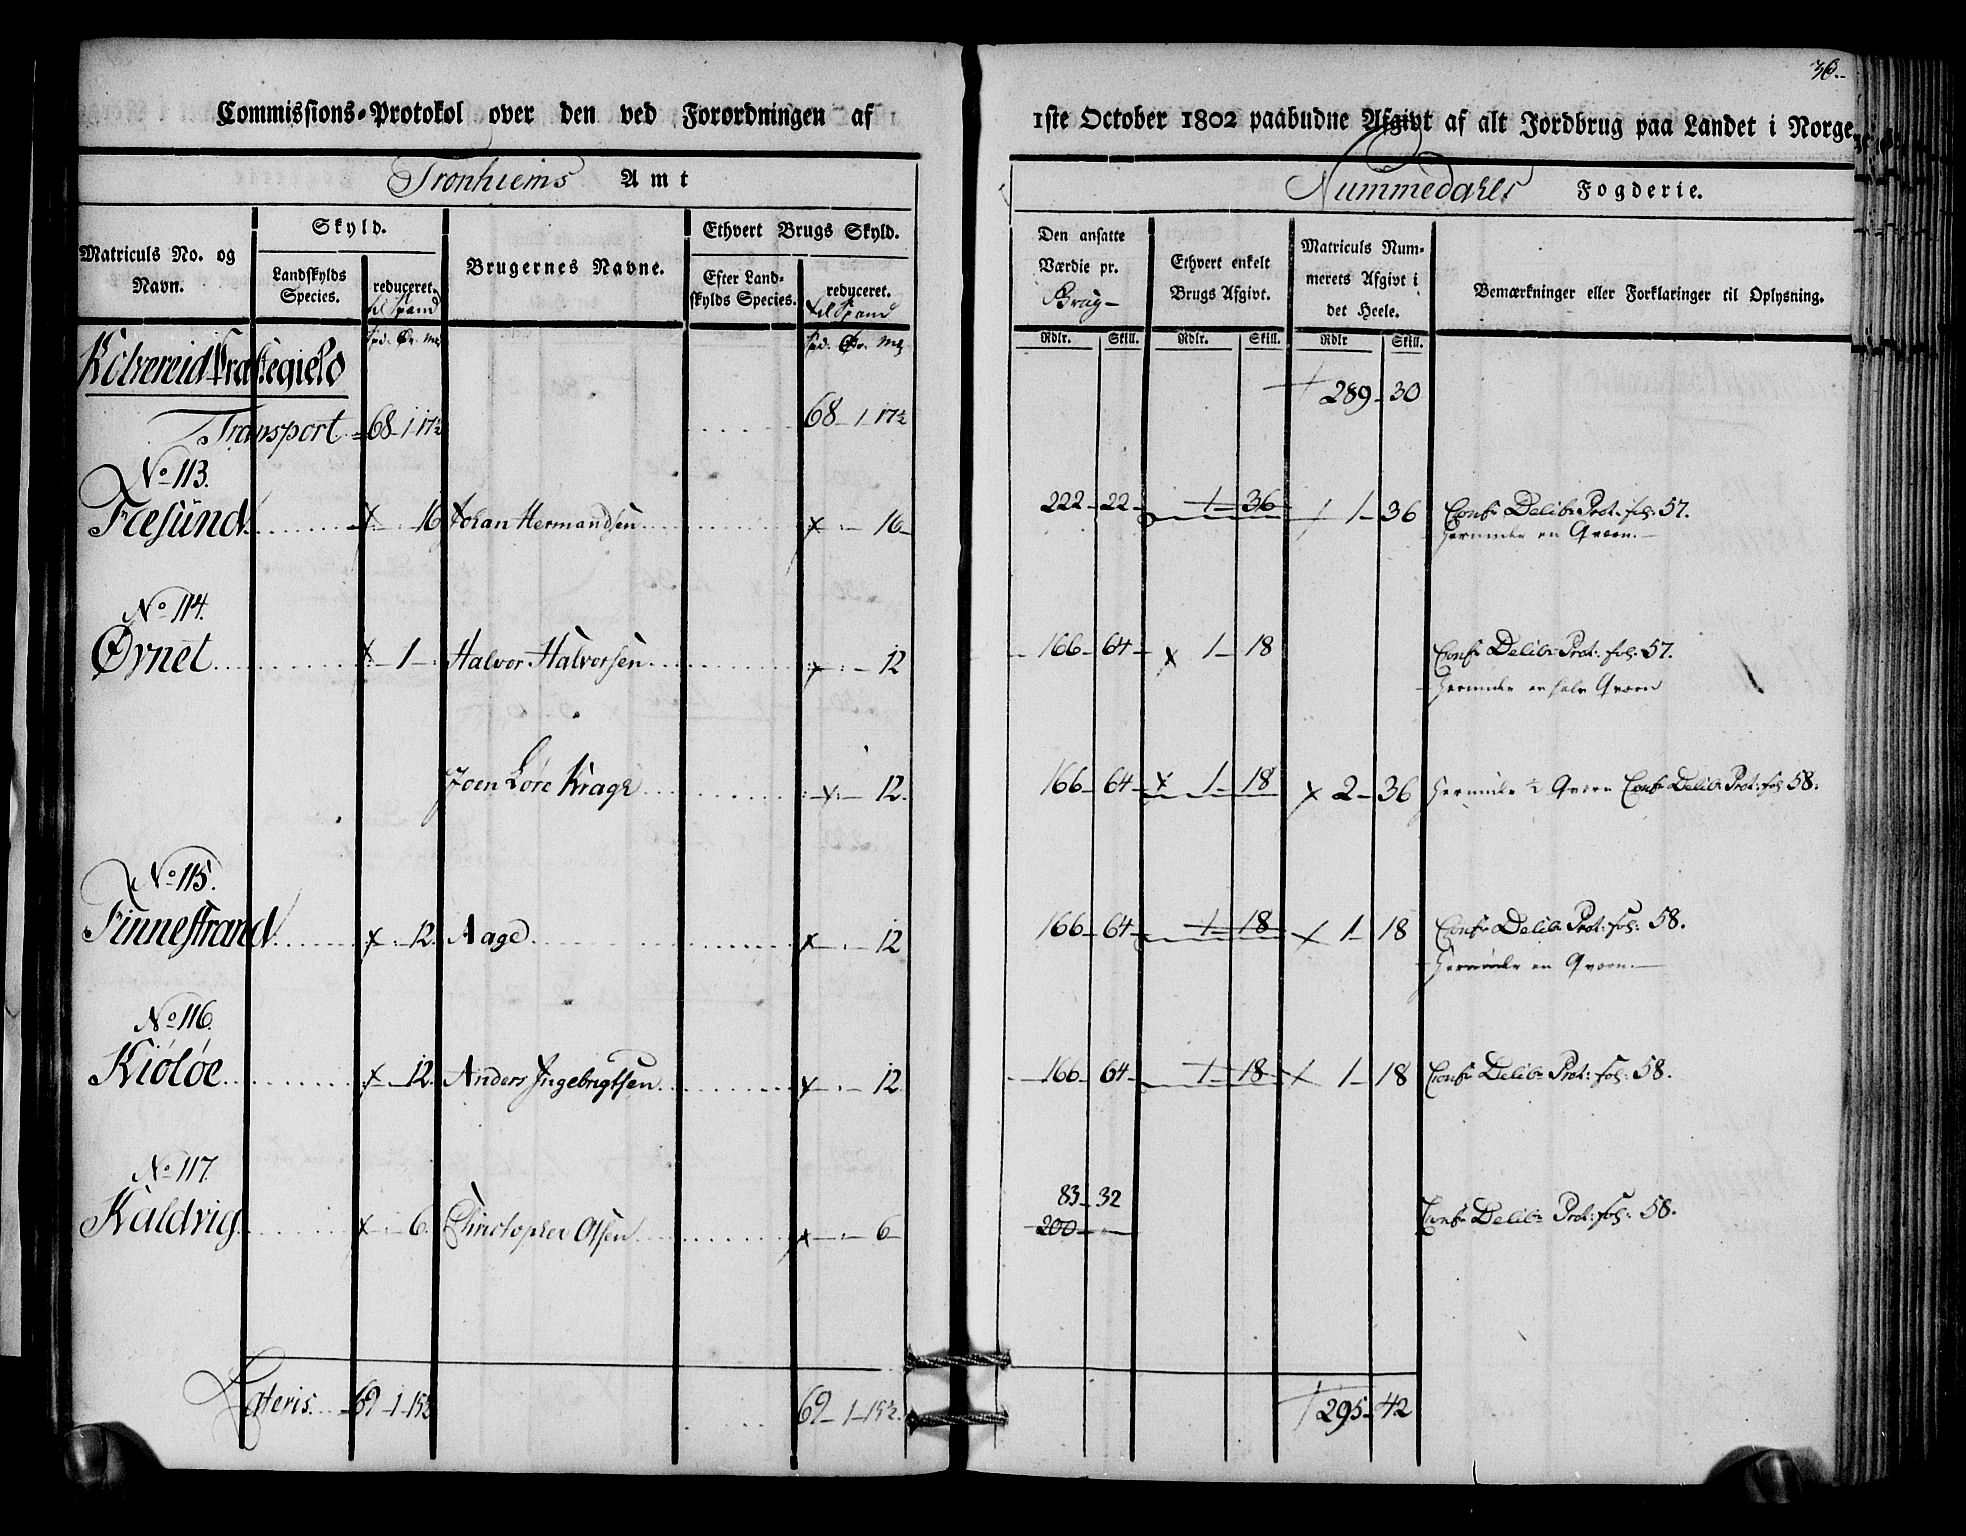 36.
Commissions-Protokol over den ved Forordningen af 1ste October 1802 paabudne Afgivt af alt Jordbrug paa Landet i Norge
Tronhiems Amt
Nummedahls Fogderie.
Matriculs No. og Navn.
Skyld.
Landskylds Species.
reduceret. til Spand
Brugernes Navne.
Ethvert Brugs Skyld.
Efter Landskylds Species.
reduceret. til Spand
Den ansatte Værdie pr. Brug-
Ethvert enkelt Brugs Afgivt.
Matriculs Nummerets Afgivt i det Heele.
Bemærkninger eller Forklaringer til Oplysning.
Spd. Ør. Mk
Spd. Ør. Mk
Rdlr. Skill. Rdlr. Skill. Rdlr Skill.
Kolvereid Præstegield
Transport 68 1 17½ 68 1 17½ 289 30
No 113.
Flesund x 16 Johan Hermandsen x 16 222 22 1 36 1 36 Conf: Delib: Prot: fol: 57.
herunder en Qværn.
No 114.
Øvnet x 1 Halvor Halvorsen x 12 166 64 x 1 18 Conf: Delib: Prot: fol: 57.
herunder en halv Qværn
Joen Lorc Krage x 12 166 64 x 1 18 x 2 36 herunder ½ Qværn Conf: Delib: Prot: fol 58.
No 115.
Finnestrand x 12 Aage x 12 166 64 1 18 x 1 18 Conf: Delib: Prot: fol: 58.
herunder en Qværn.
No 116.
Kiøløe x 12 Anders Ingebrigtsen x 12 166 64 1 18 1 18 Conf: Delib: Prot: fol: 58.
No 117.
83 32
Kaldvig x 6 Christopher Olsen x 6 200 Conf: Delib: Prot: fol: 58.
Lateris 69 1 15½ 69 1 15½ 295 42